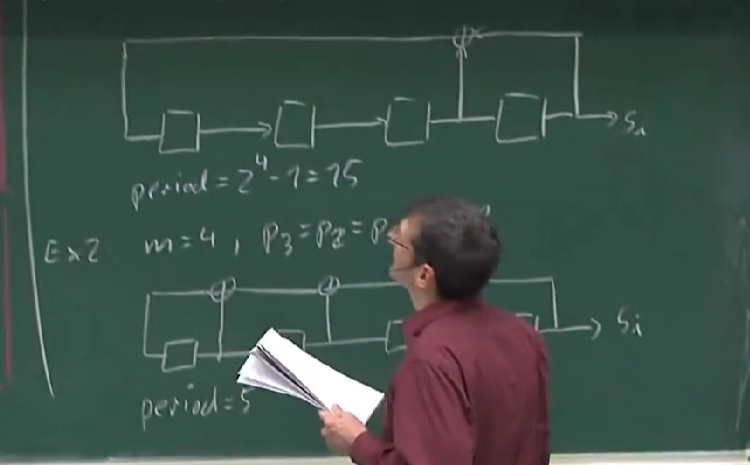 Si
period = 2^4 - 1 = 15
Ex 2 m = 4, p3 = p2 = p
Si
period = 5